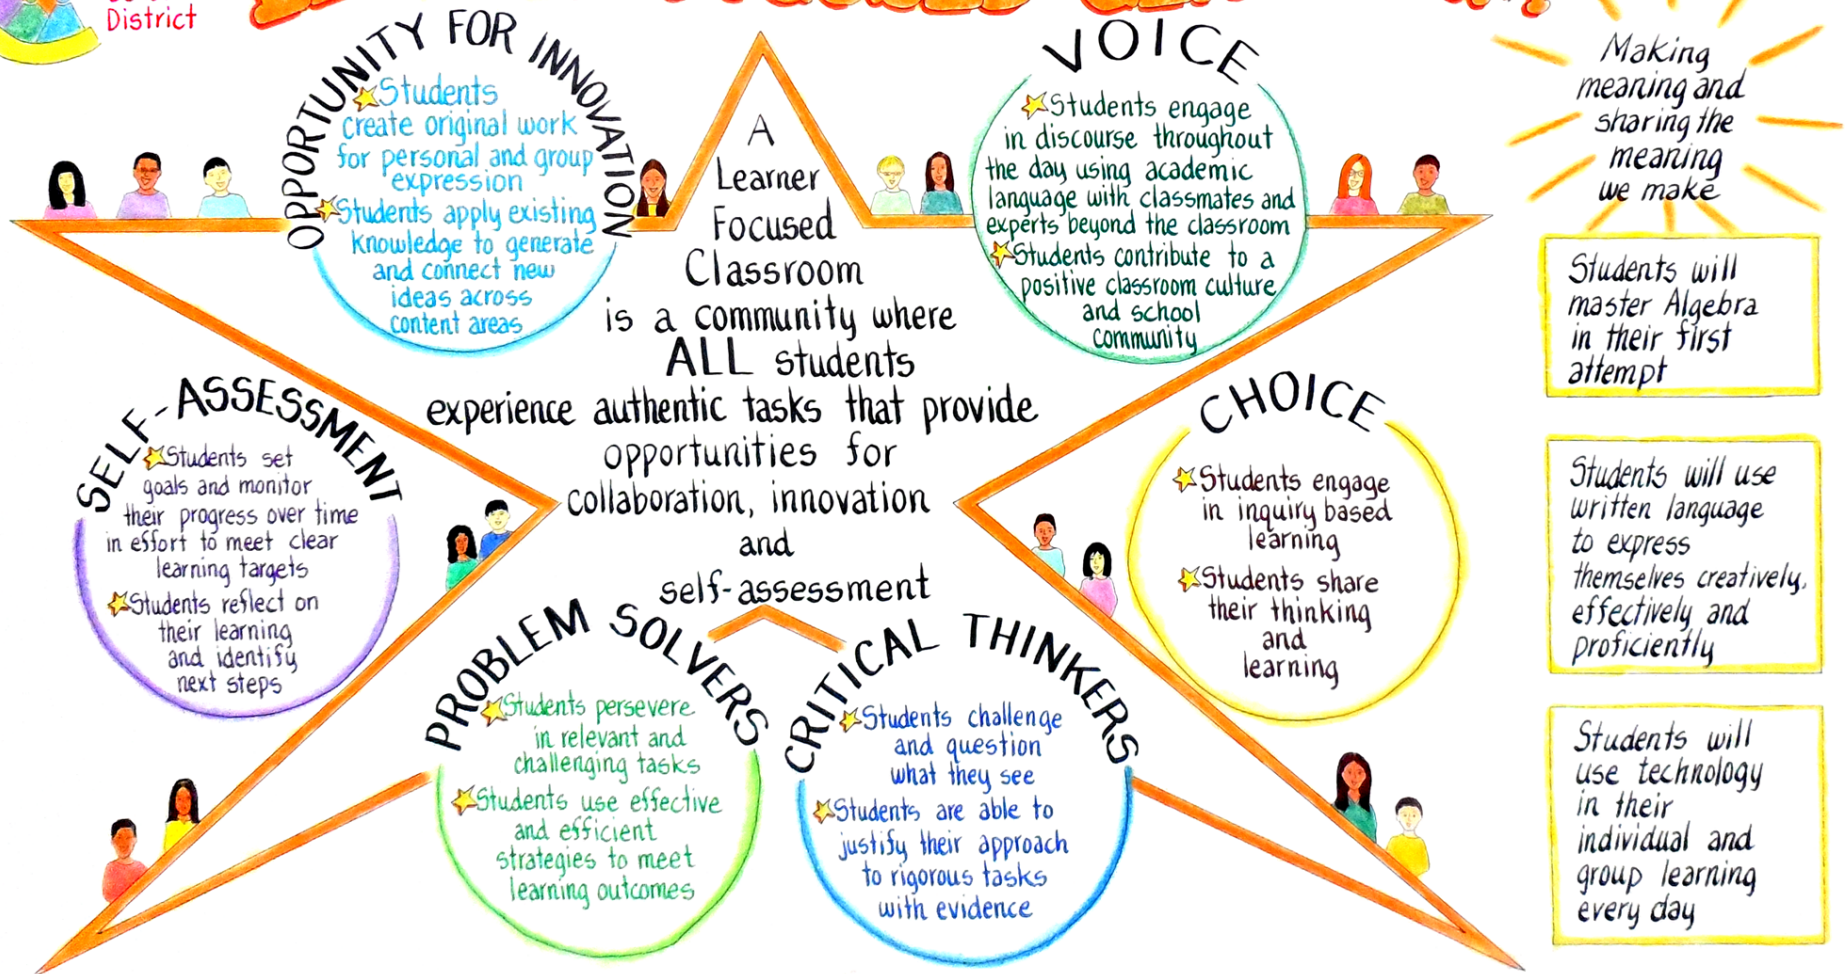 District
OPPORTUNITY FOR INNOVATION
Students
create original work
for personal and group
expression
Students apply existing
knowledge to generate
and connect new
ideas across
content areas
A
Learner
Focused
Classroom
is a community where
ALL students
experience authentic tasks that provide
opportunities for
collaboration, innovation
and
self-assessment
VOICE
Students engage
in discourse throughout
the day using academic
language with classmates and
experts beyond the classroom
Students contribute to a
positive classroom culture
and school
community
SELF-ASSESSMENT
Students set
goals and monitor
their progress over time
in effort to meet clear
learning targets
Students reflect on
their learning
and identify
next steps
CHOICE
Students engage
in inquiry based
learning
Students share
their thinking
and
learning
PROBLEM SOLVERS
Students persevere
in relevant and
challenging tasks
Students use effective
and efficient
strategies to meet
learning outcomes
CRITICAL THINKERS
Students challenge
and question
what they see
Students are able to
justify their approach
to rigorous tasks
with evidence
Making
meaning and
sharing the
meaning
we make
Students will
master Algebra
in their first
attempt
Students will use
written language
to express
themselves creatively,
effectively and
proficiently
Students will
use technology
in their
individual and
group learning
every day